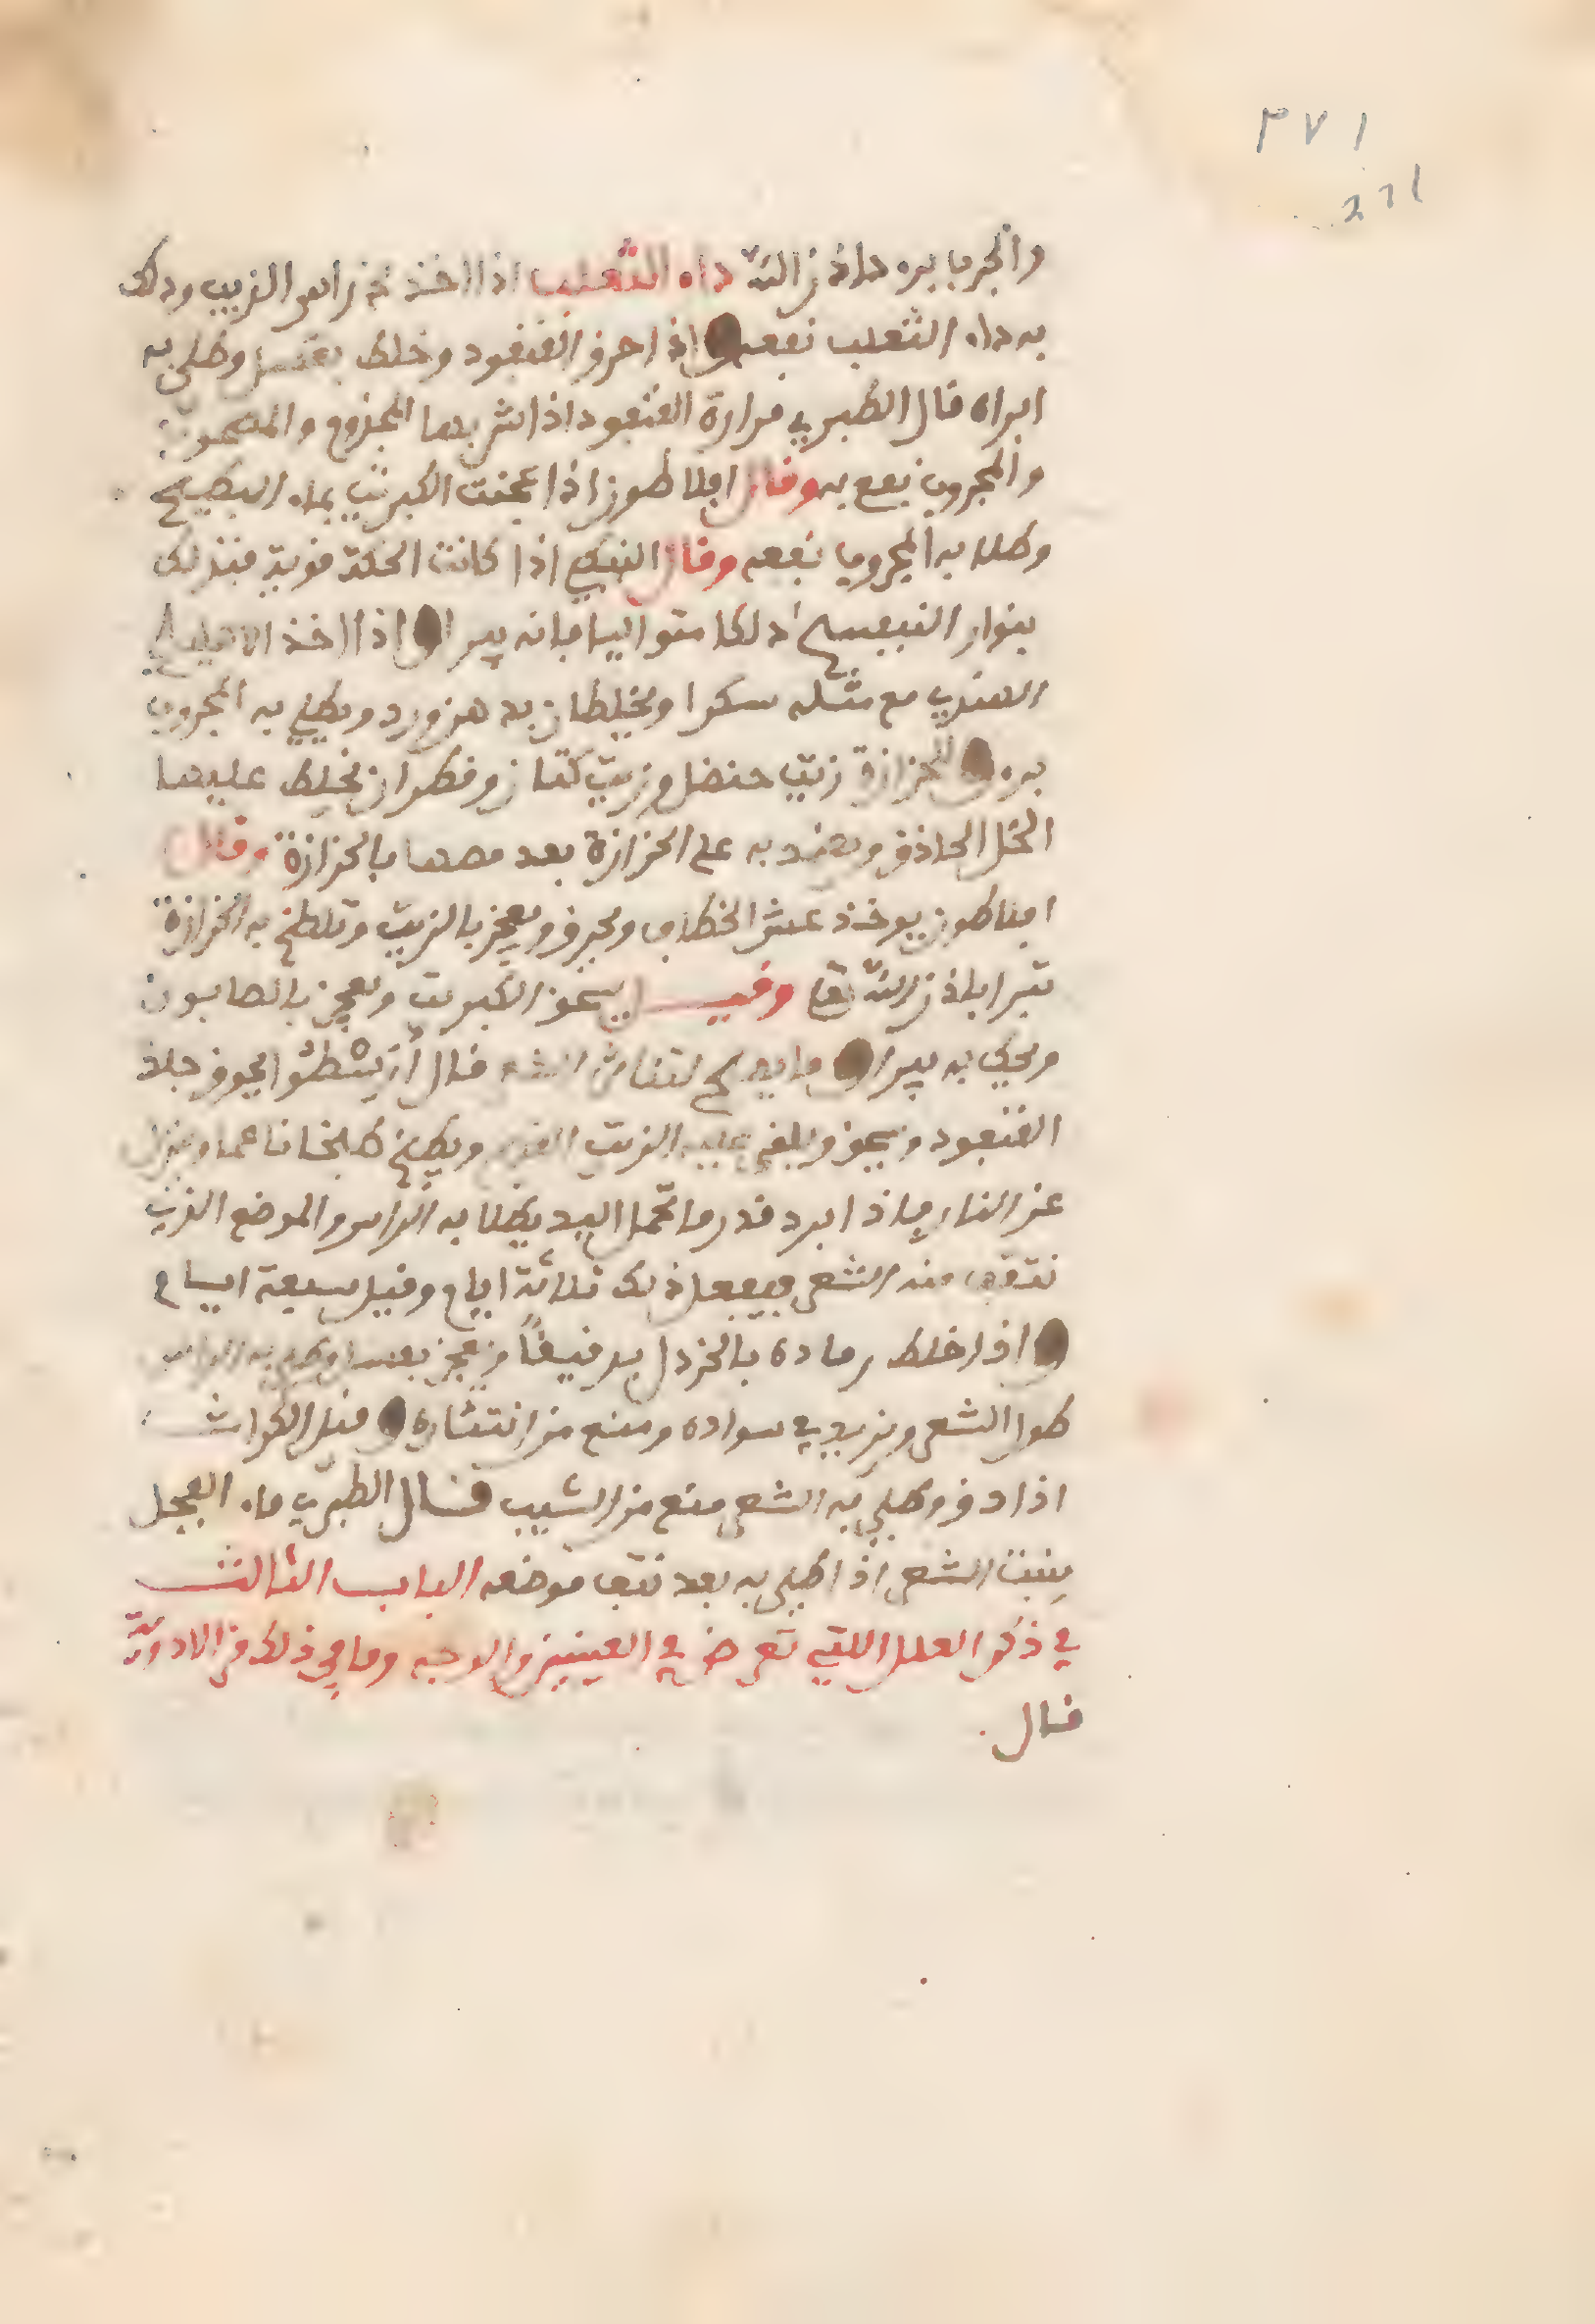 ٣٧١
271
والجرب ابره باذن الله داء الثعلب اذا اخذ من راس الزبيب ودلك
به داء الثعلب نفعه و اذا احرق القنفود وخلط بعسل وطلى به
ابراه قال الطبري مرارة القنفود اذا شربها المجذوم والمسموم
والمجروب نفع به وقال افلاطون اذا عجنت الكبريت بماء البطيخ
وطلا به المجروب نفعه وقال اذا كانت الحكة قوية فتدلك
بنوار البنفسج دلكا متواليا فانه يبرا و اذا اخذ الاهليلج
الهندي مع مثله سكرا ويخلطان بدهن ورد ويطلى به المجروب
بره و للحزازة زيت حنضل وزيت كتان وقطران يخلط عليها
الخل الحاذق ويضمد به على الحزازة بعد مصها بالحزازة وقال
افلاطون يوخذ عش الخطاف ويحرق ويعجن بالزيت وتلطخ به الحزازة
تبرا باذن الله تعا وقيل يسحق الكبريت ويعجن بالصابون
ويحك به يبرا و ما يصلح لتناثر الشعر قال أرسطوا يحرق جلد
القنفود ويسحق ويلقى عليه الزيت ويطبخ طبخا ناعما وينزل
عن النار فاذا ابرد قدر ما تحمل اليد يطلا به الراس والموضع الذي
نتف منه الشعر فيفعل ذلك ثلاثة ايام وقيل سبعة ايام
و اذا خلط رماده بالخردل يدقيقاً ويعجن بعسل وطلى به الراس
طول الشعر ويزيد في سواده ومنع من انتثاره و قيل الكراث
اذا دق وطلي به الشعر منع من الشيب قال الطبري ماء الفجل
ينبت الشعر اذا طلي به بعد نتف موضعه الباب الثالث
في ذكر العلل اللتي تعرض في العينين والوجه وما في ذلك من الادوية
قال